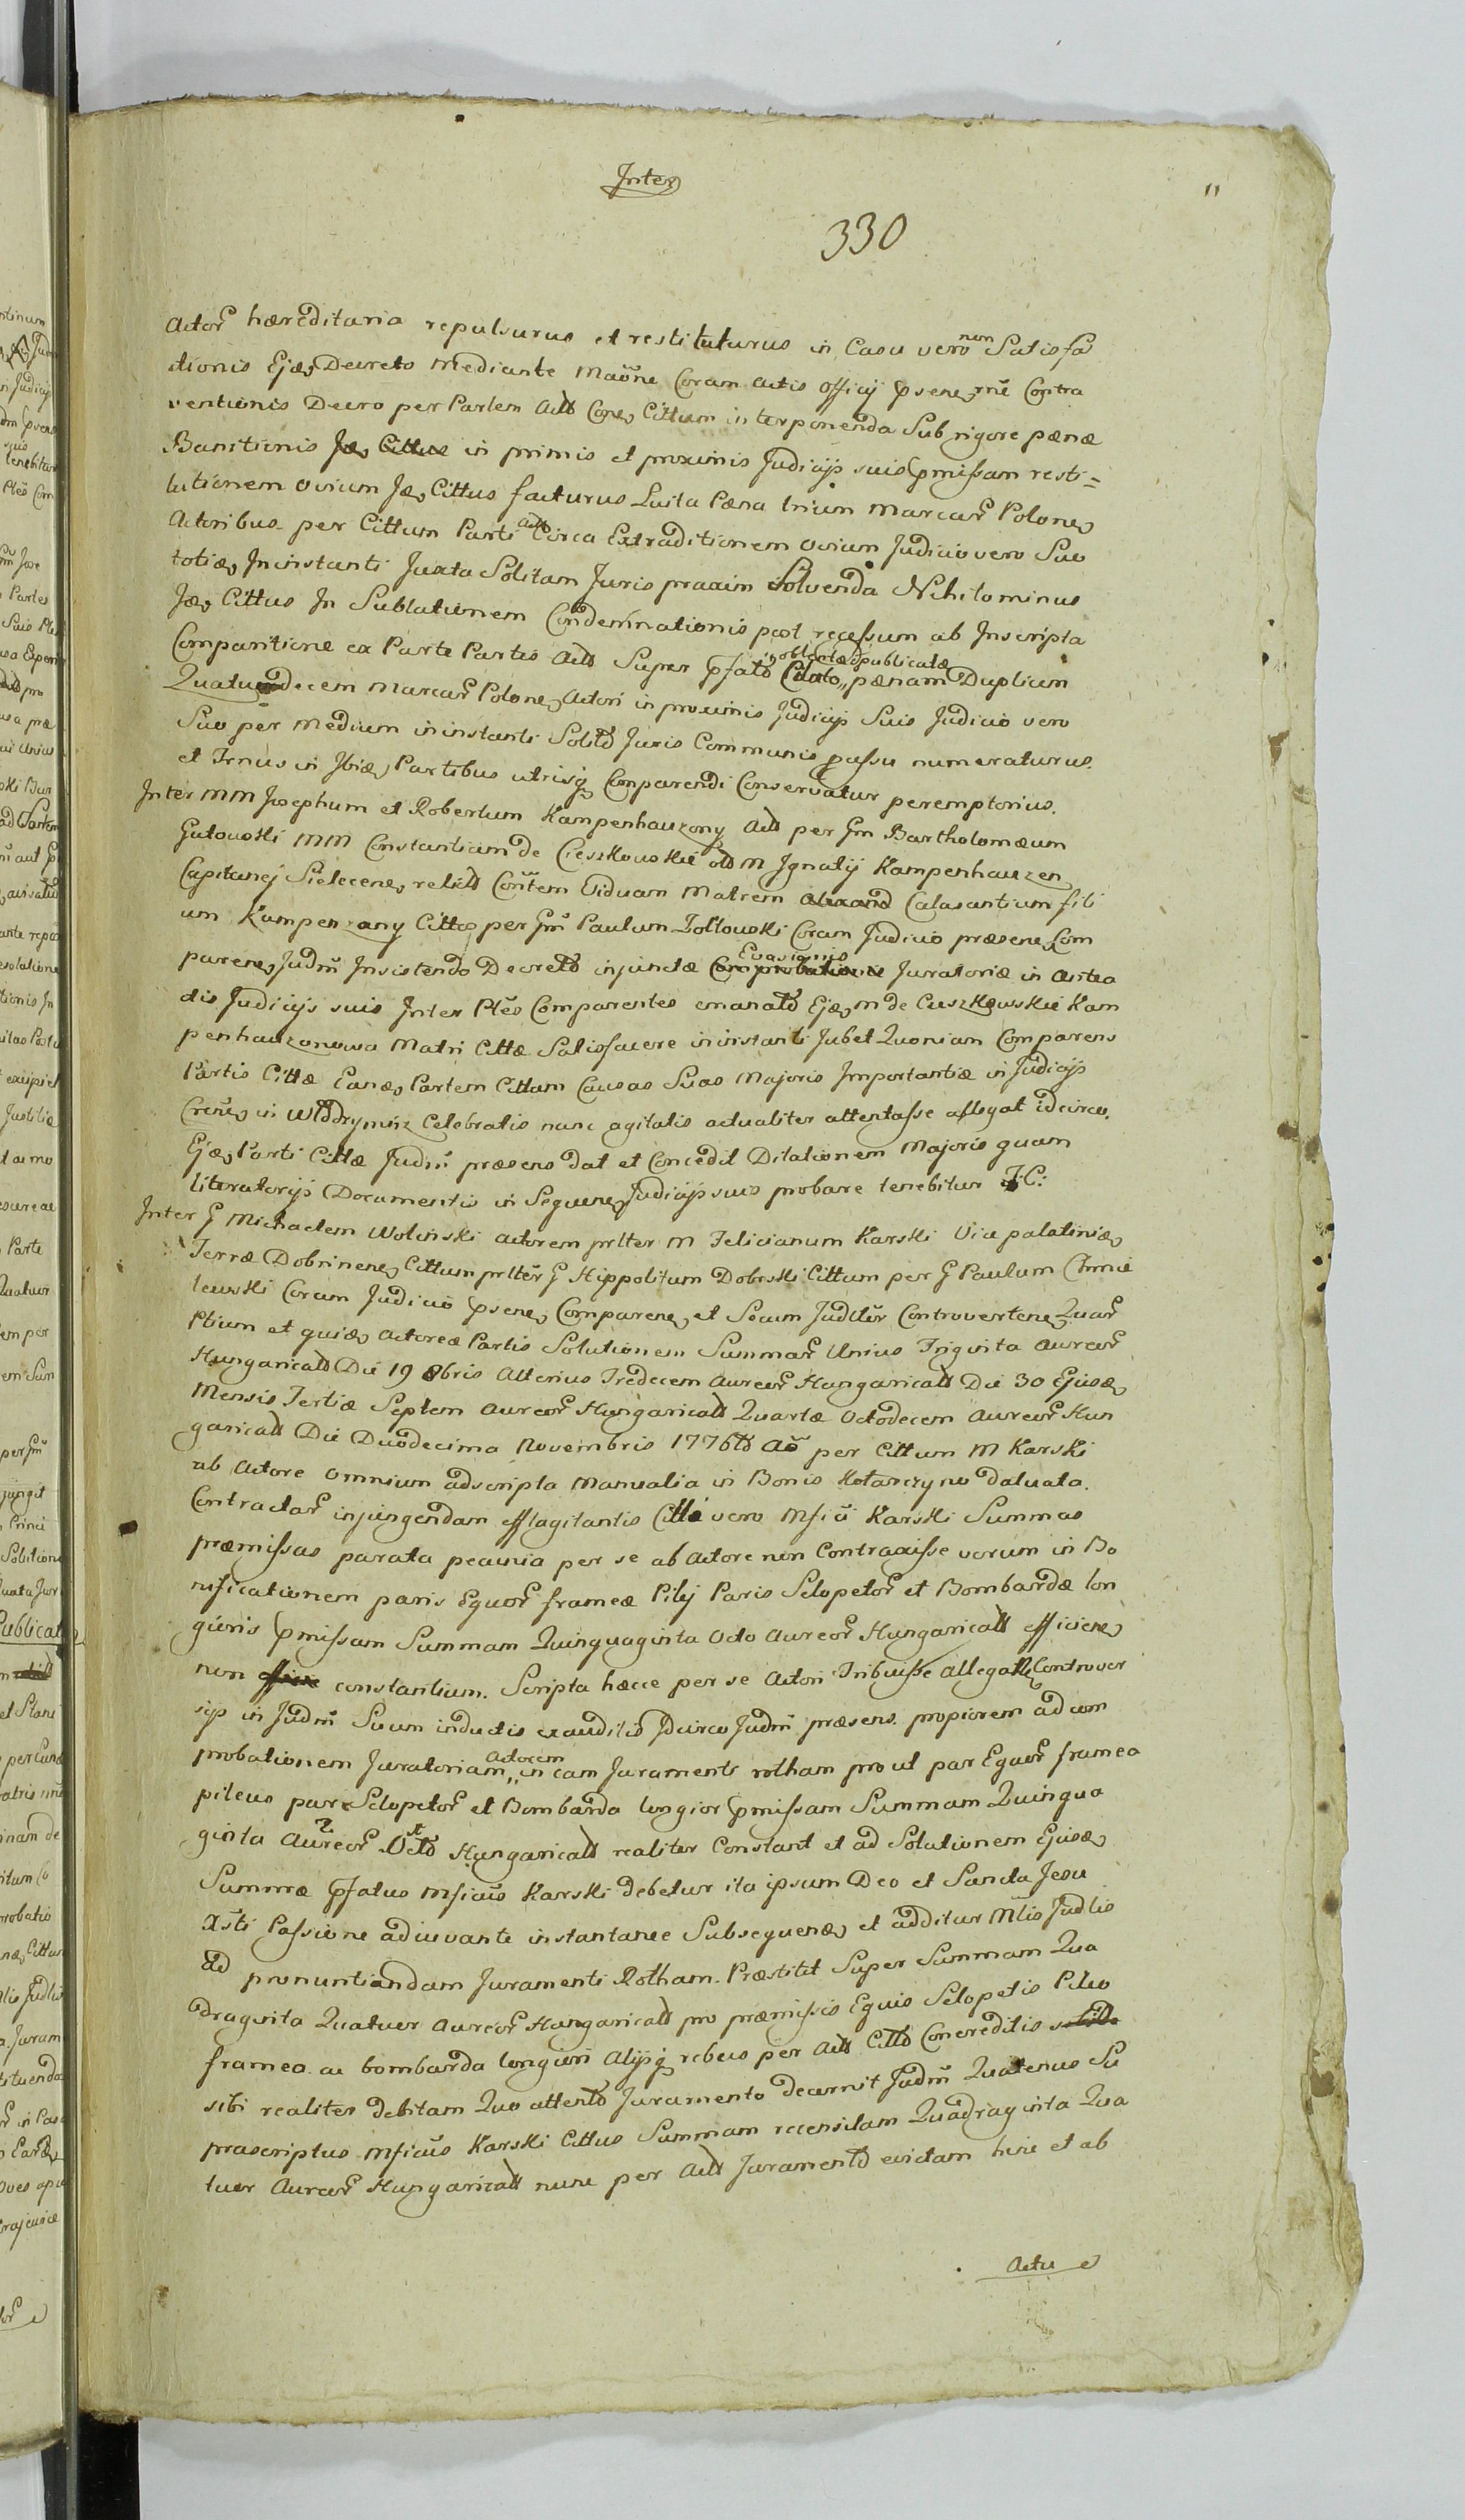 Inter
11
330
Actor hæreditaria repulsurus et restituturus in Casu vero non Satisfa
ctionis Ejæ Decreto Mediante Maone Coram Actis Officij psene, rne Contra
ventionis Decro per Partem Act Cone Cittum interponenda Sub rigore pænæ
Banitionis Jæ Cittus in primis et proximis Judicijs suis pmissam resti=
tutionem Ovium Jæ Cittus facturus Luita Pæna trium Marcar Polone
Actoribus per Cittum Parti Act Circa Extraditionem Ovium Judicio vero Suo
totiæ In instanti Juxta Solitam Juris praxim Solvenda Nihilominus
Jæ Cittus In Sublationem Condemnationis post recessum ab Inscripta
Comparitione ex Parte Partis Act Super pfato Citato in oblatæ publicatæ pænam Duplicem
Quatuordecem Marcar Polone Actori in proximis Judicijs Suis Judicio vero
Suo per Medium in instanti Solito Juris Communis passu numeraturus.
et Trnus in Jbiæ Partibus utrisq Comparendi Conservatur peremptorius.
Inter MM Josephum et Robertum Kampenhauzony Act per Gm Bartholomæum
Gutowski MM Constantiam de Cieszkowskie olt M Ignatij Kampenhauzen
Capitanej Sielecene, relict Contem Viduam Matrem Alexand Calasantium fili
um Kampenzany Cittos per Gm Paulum Zołtowski Coram Judicio præsene Com
parene, Judm Insistendo Decreto injunctæ Comprobationis Evasionis Juratoriæ in Antea
ctis Judicijs suis Inter Ptes Comparentes emanato Ejæ M de Cieszkowskie Kam
penhauzonowa Matri Cittæ Satisfacere in instanti Jubet Quoniam Comparens
Partis Cittæ Eanæ, Partem Cittam Causas Suas Majoris Importantiæ in Judicijs
Crene, in Włodzymirz Celebratis nunc agitatis actualiter attentasse allegat idcirco.
Ejæ Parti Cittæ Judm præsens dat et Concedit Dilationem Majoris quam
literatorijs Documentis in Sequene, Judicijs suis probare tenebitur JC:
Inter G Michaelem Wolinski Actorem prlter M Felicianum Karski Vice palatiniæ
Terræ Dobrinene, Cittum prlter G Hippolitum Dobrski Cittum per G Paulum Chmie
lewski Coram Judicio psene, Comparene, et Secum Judtlr Controvertene, Quar
Ptium et quiæ Actoreæ Partis Solutionem Summar Unius Triginta Aureor
Hungaricalt Die 19 8bris Alterius Tredecem Aureor Hungaricalt Die 30 Ejusæ
Mensis Tertiæ Septem Aureor Hungaricalt Quartæ Octodecem Aureor Hun
garicalt Die Duodecima Novembris 1776to Ao per Cittum M Karski
ab Actore Omnium adscripta Manualia in Bonis Kotarczyno datuata.
Contractar injungendam efflagitantis Citti vero Msici Karski Summas
præmissas parata pecunia per se ab Actore non Contraxisse verum in Bo
nificationem paris Equor frameæ Pilej Paris Sclopetor et Bombardæ lon
gioris pmissam Summam Quinquaginta Octo Aureor Hungaricalt efficiene,
non constantium. Scripta hæcce per se Actori Tribuisse allegatt Controver
sijs in Judm Suum inductis exauditis Idcirco Judm præsens propiorem ad com
probationem Juratoriam Actorem in eam Juramenti rotham pro ut par Equor framea
pileus par Sclopetor et Bombarda longior pmissam Summam Quinqua
ginta Aureor Octo Hungaricalt realiter Constant et ad Solutionem Ejusæ
Summæ pfatus Msicus Karski debetur ita ipsum Deo et Sancta Jesu
Xsti Passione adiuvante instantanee Subsequenæ et additur Mlis Judlis
Ad pronuntiandam Juramenti Rotham. Præstitit Super Summam Qua
draginta Quatuor Aureor Hungaricalt pro præmissis Equis Sclopetis Pileo
framea ac bombarda longiori Alijsq rebus per Act Citto Concreditis
sibi realiter debitam Quo attento Juramento decernit Judm Quatenus Su
prascriptus Msicus Karski Cittus Summam recensitam Quadraginta Qua
tuor Aureor Hungaricalt nunc per Act Juramento evictam hinc et ab
Actu